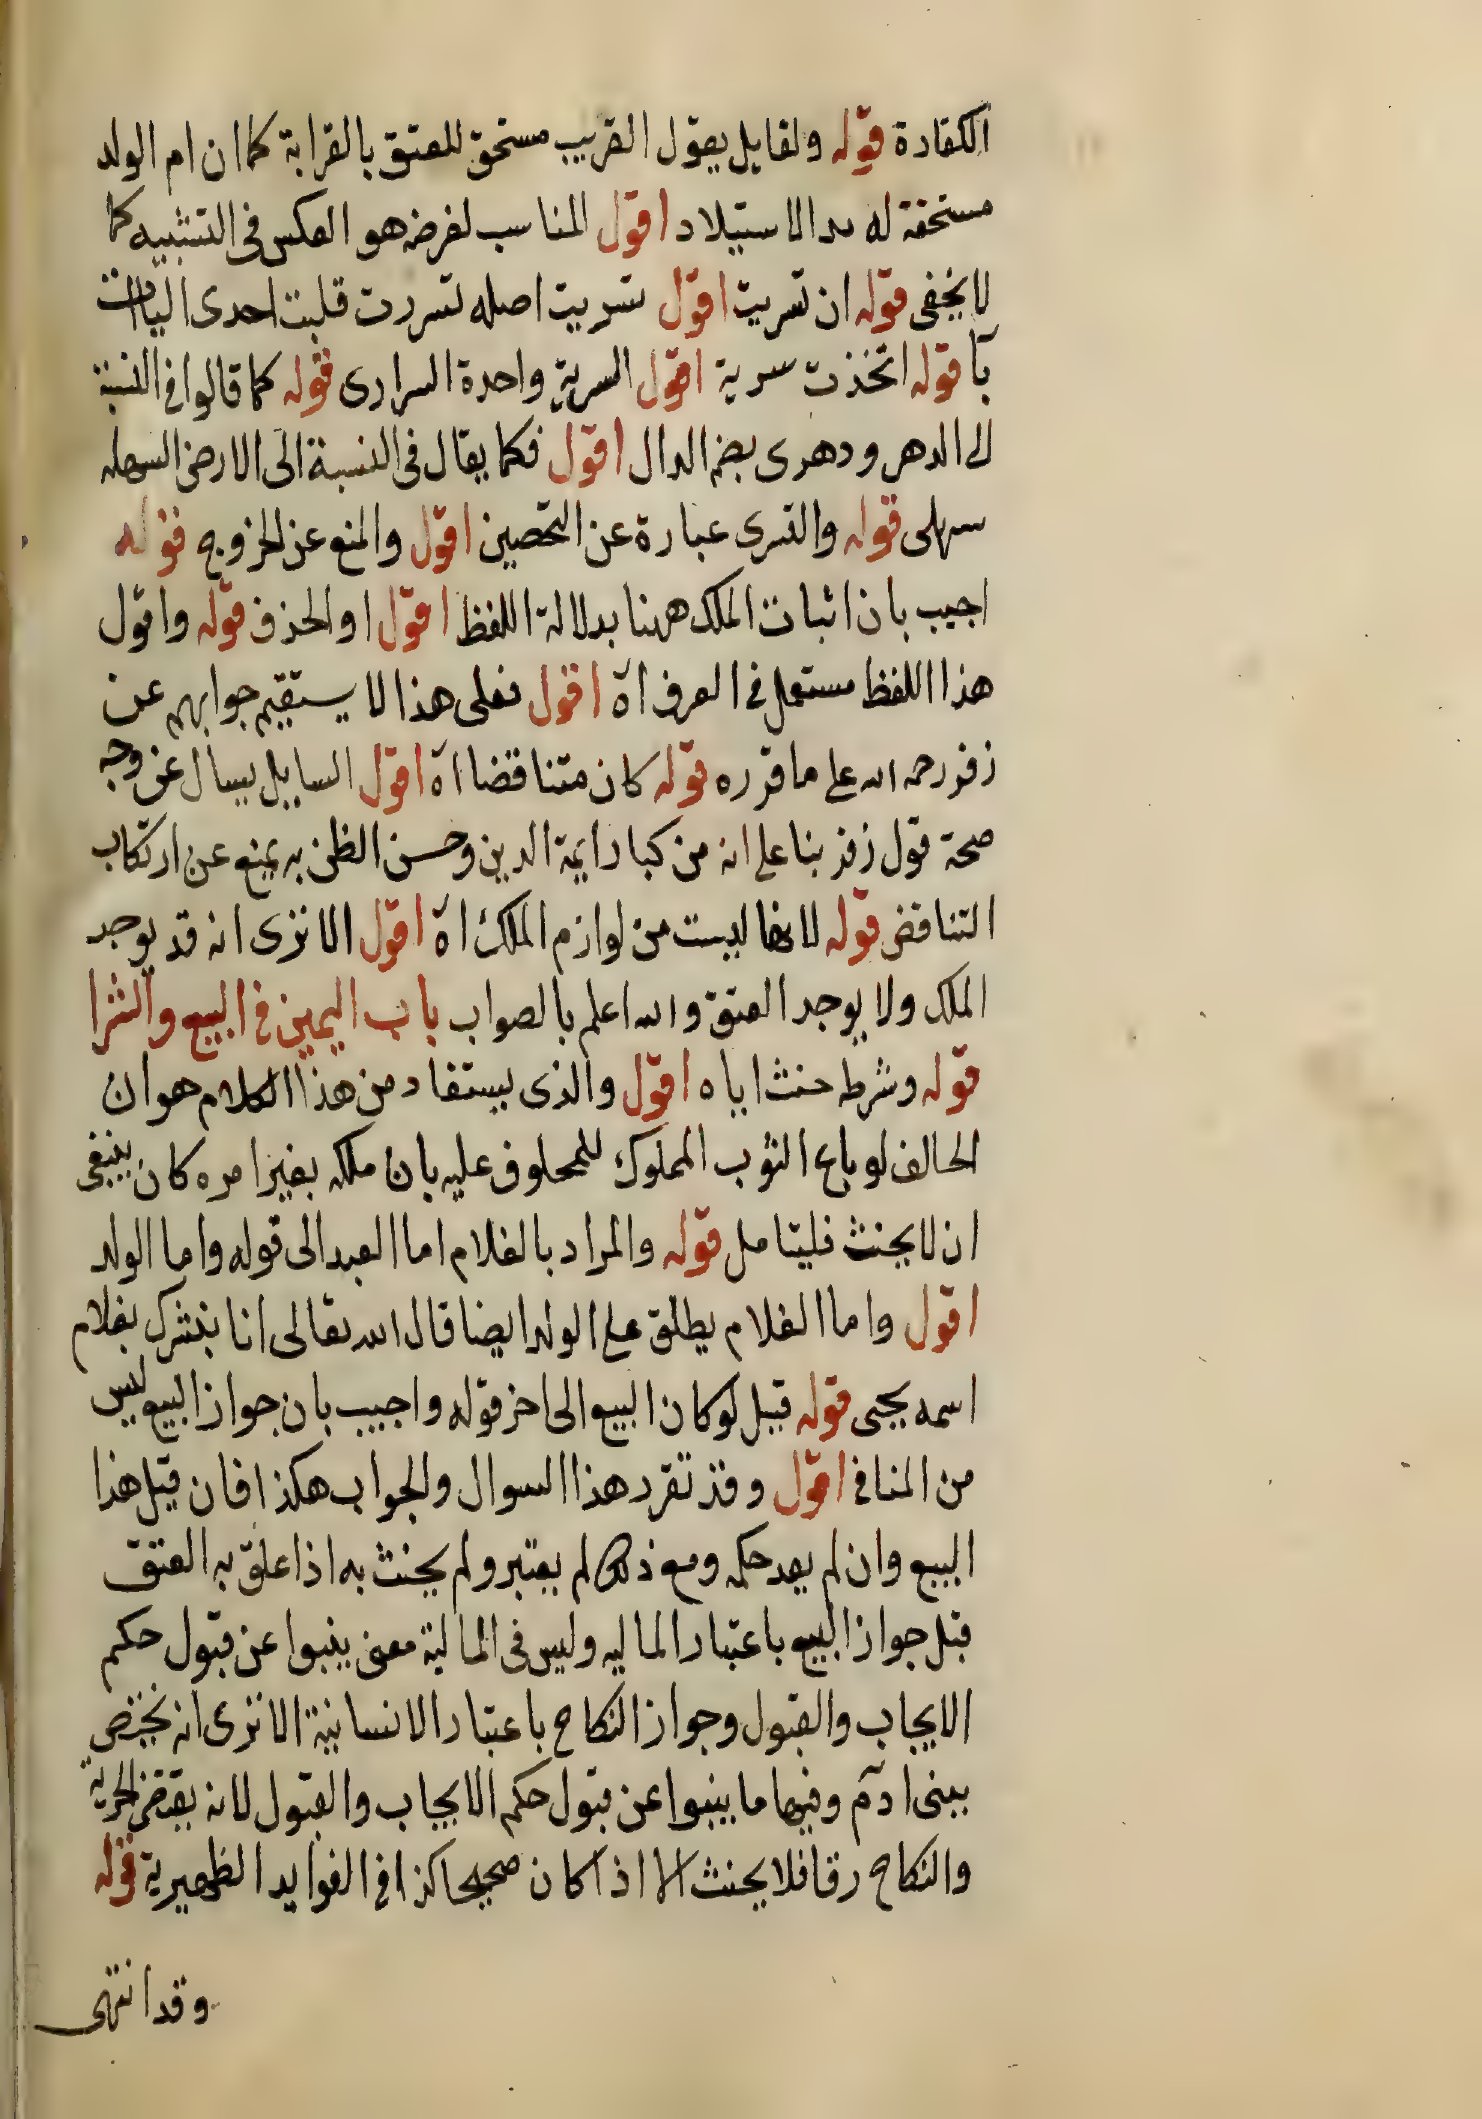 الكفارة قوله ولقايل يقول القريب مستحق للعتق بالقرابة كما ان ام الولد
مستحقة له بالاستيلاد اقول المناسب لغرضه هو العكس فى التشبيه كما
لا يخفى قوله ان تسريت اقول تسريت اصله تسررت قلبت احدى الياات
يآ قوله اتخذت سرية اقول السرية واحدة السرارى قوله كما قالوا فى النسبة
الى الدهر ودهرى بضم الدال اقول فكما يقال فى النسبة الى الارض السهله
سهلى قوله والتسرى عبارة عن التحصين اقول والمنع عن الخروج قوله
اجيب بان اثبات الملك ههنا بدلالة اللفظ اقول او الحذف قوله واقول
هذا اللفظ مستعمل فى العرف اه اقول فعلى هذا لا يستقيم جوابهم عن
زفر رحمه الله على ما قرره قوله كان متناقضا اه اقول السايل يسال عن وجه
صحة قول زفر بنا على انه من كبار ايمة الدين وحسن الظن به يمنع عن ارتكاب
التناقض قوله لانها ليست من لوازم الملك اه اقول الا ترى انه قد يوجد
الملك ولا يوجد العتق والله اعلم بالصواب باب اليمين فى البيع والشرا
قوله وشرط حنث اياه اقول والذى يستفاد من هذا الكلام هو ان
الحالف لو باع الثوب المملوك للمحلوف عليه بان ملكه بغير امره كان ينبغى
ان لا يحنث فليتامل قوله والمراد بالغلام اما العبد الى قوله واما الولد
اقول واما الغلام يطلق على الولد ايضا قال الله تعالى انا نبشرك بغلام
اسمه يحيى قوله قيل لو كان البيع الى اخر قوله واجيب بان جواز البيع ليس
من المنافى اقول وقد تقرر هذا السوال والجواب هكذا فان قيل هذا
البيع وان لم يعد حكمه ومع ذلك لم يعتبر ولم يحنث به اذا علق به العتق
قيل جواز البيع باعتبار الماليه وليس فى المالية معنى ينبوا عن قبول حكم
الايجاب والقبول وجواز النكاح باعتبار الانسانية الا ترى انه يختص
ببنى ادم وفيها ما ينبوا عن قبول حكم الايجاب والقبول لانه يقتضى الحرية
والنكاح رق فلا يحنث الا اذا كان صحيحا كذا فى الفوايد الظهيرية قوله
وقد انتهى